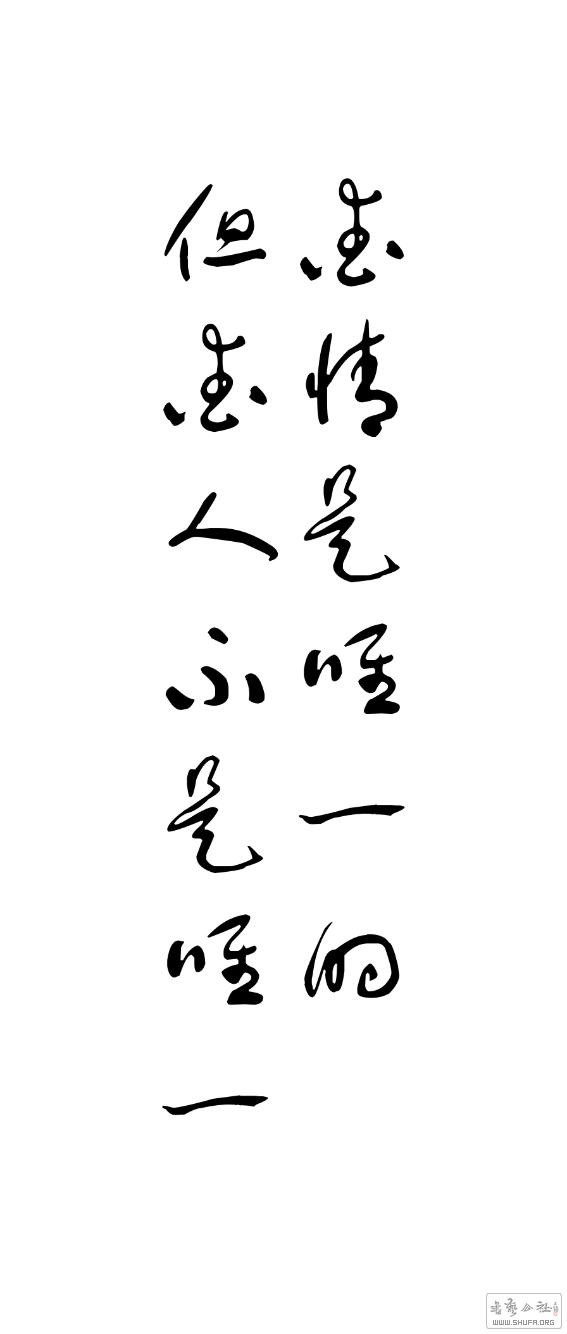 恋情是唯一的
但恋人不是唯一
书艺公社
WWW.SHUFA.ORG